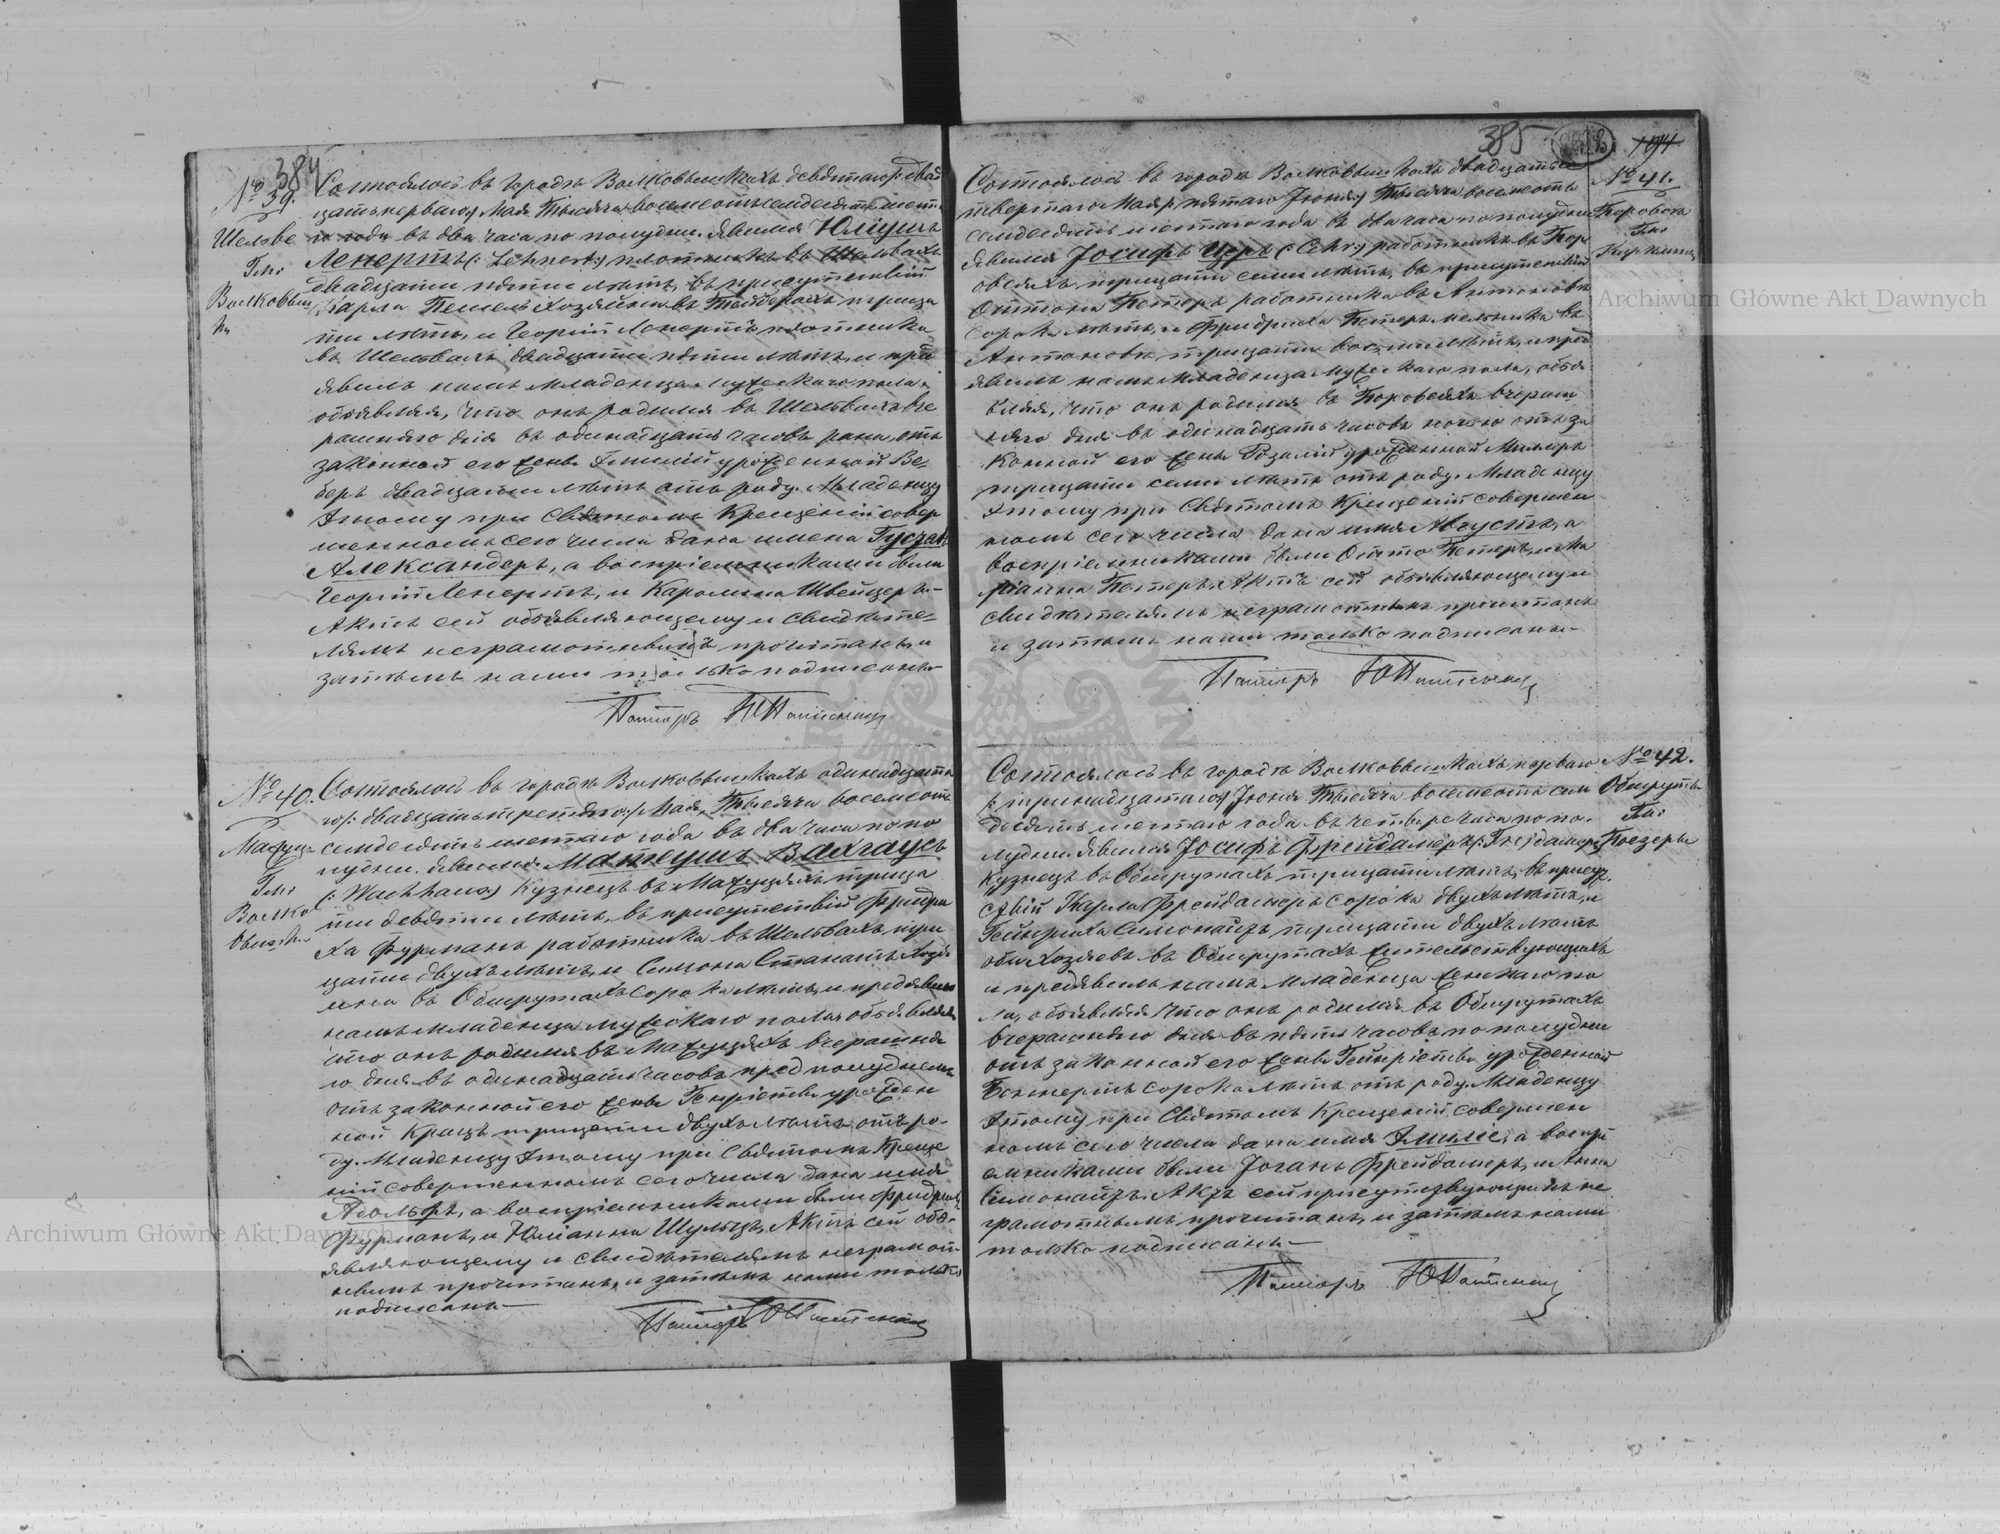 384
№ 39.
Шельве
Гм:
Волковыш
ки
Состоялось въ городѣ Волковышкахъ девятаго /: двад
цать перваго :/ Мая Тысяча восемьсотъ семдесятъ шеста
го года въ два часа по полудни. Явился Юліушъ
Ленертъ (: Lehnert :) плотникъ въ Шельвахъ
двадцати пяти лѣтъ, въ присутствіи
Карла хозяина въ тридца
ти лѣтъ, и Георгія Ленертъ плотника
въ Шельвахъ двадцати пяти лѣтъ, и предъ
явилъ намъ младенца мужескаго пола,
объявляя, что онъ родился въ Шельвахъ вче
рашняго дня въ одинадцать часовъ рана, отъ
законной его жены Эмиліи урожденной Ве-
беръ двадцати лѣтъ отъ роду. Младенцу
этому при Святомъ Крещеніи совер
шенномъ сего числа дана имена Густавъ
Александеръ, а воспріемниками были
Георгій Ленертъ, и Каролина Швейцеръ.-
Актъ сей объявляющему и свидѣте-
лямъ неграмотнымъ прочитанъ, и
затѣмъ нами только подписанъ.
Пасторъ
№ 40.
Мажуц
Гм:
Волко
вышки
Состоялось въ городѣ Волковышкахъ одинадцата
го /: двадцать третяго :/ Мая, Тысяча восемьсотъ
семдесятъ шестаго года въ два часа по по
лудни. Явился Матеушъ Вахгаусъ
(: Wachhaus :) Кузнецъ въ Мажуцяхъ трица
ти девяти лѣтъ, въ присутствіи Фридри
ха Фурманъ работника въ Шельвахъ три
цати двухъ лѣтъ, и Симона хозя
ина въ Обшрутахъ сорока лѣтъ, и предъявилъ
намъ младенца мужескаго пола, объявляя
что онъ родился въ Мажуцяхъ вчерашня
го дня въ одинадцать часовъ предполуднемъ
отъ законной его жены Генріеты урожден
ной Крацъ трицети двухъ лѣтъ отъ ро-
ду. Младенцу этому при Святомъ Креще
ніи совершенномъ сего числа дана имя
Адольфъ, а воспріемниками были Фридрихъ
Фурманъ, и Юліанна Шульцъ, Актъ сей объ-
являющему и свидѣтелямъ неграмот-
нымъ прочитанъ, и затѣмъ нами только
подписанъ.—
Пасторъ
385
194
№ 41.
Поровсен
Гм:
Состоялось въ городѣ Волковышкахъ двадцать че
твертаго Мая /: пятаго Іюня :/ Тысяча восемьсотъ
семдесятъ шестаго года въ два часа по полудни
Явился Іосифъ Церъ (: Cehr :) работникъ въ Пор
овсяхъ, трицати семи лѣтъ, въ присутствіи
Оттона Петеръ работника въ Антоновѣ
сорока лѣтъ, и Фридриха Петеръ мельника въ
Антоновѣ трицати восьми лѣтъ, и пред
явилъ намъ младенца мужескаго пола, объя
вляя, что онъ родился въ Поровсяхъ вчераш
няго дня въ одинадцать часовъ ночью отъ за
конной его жены Розаліи урожденной Миллеръ
трицати семи лѣтъ отъ роду. Младенцу
этому при Святомъ Крещеніи совершен
номъ сего числа дана имя Августъ, а
воспріемниками были Отто Петеръ, и Ма
ріанна Петеръ. Актъ сей объявляющему и
свидѣтелямъ неграмотнымъ прочитанъ
и затѣмъ нами только подписанъ.-
Пасторъ
№ 42.
Обшруты
Гм:
Поезеры
Состоялось въ городѣ Волковышкахъ, перваго
/: тринадцатаго :/ Іюня Тысяча восемьсотъ сем
десятъ шестаго года въ четыре часа по по-
лудни. Явился Іосифъ Фрейдамеръ
Кузнецъ въ Обшрутахъ трицати лѣтъ, въ присут
ствіи Карла Фрейдамеръ сорока двухъ лѣтъ, и
Гейнриха Симонайтъ трицати двухъ лѣтъ
оби хозяевъ въ Обшрутахъ жительствующихъ
и предявилъ намъ младенца женскаго по
ла, объявляя что онъ родился въ Обшрутахъ
вчерашняго дня въ пять часовъ по полудни
отъ законной его жены Гейнріеты урожденной
сорока лѣтъ отъ роду. Младенцу
этому при Святомъ Крещеніи совершен
номъ сего числа дана имя Эмилie, а воспрі
емниками были Іоганъ Фрейдамеръ, и Анна
Симонайтъ. Актъ сей присутствующимъ не
грамотнымъ прочитанъ, и затѣмъ нами
только подписанъ.—
Пасторъ
Archiwum Główne Akt Dawnych
Archiwum Główne Akt Dawnych